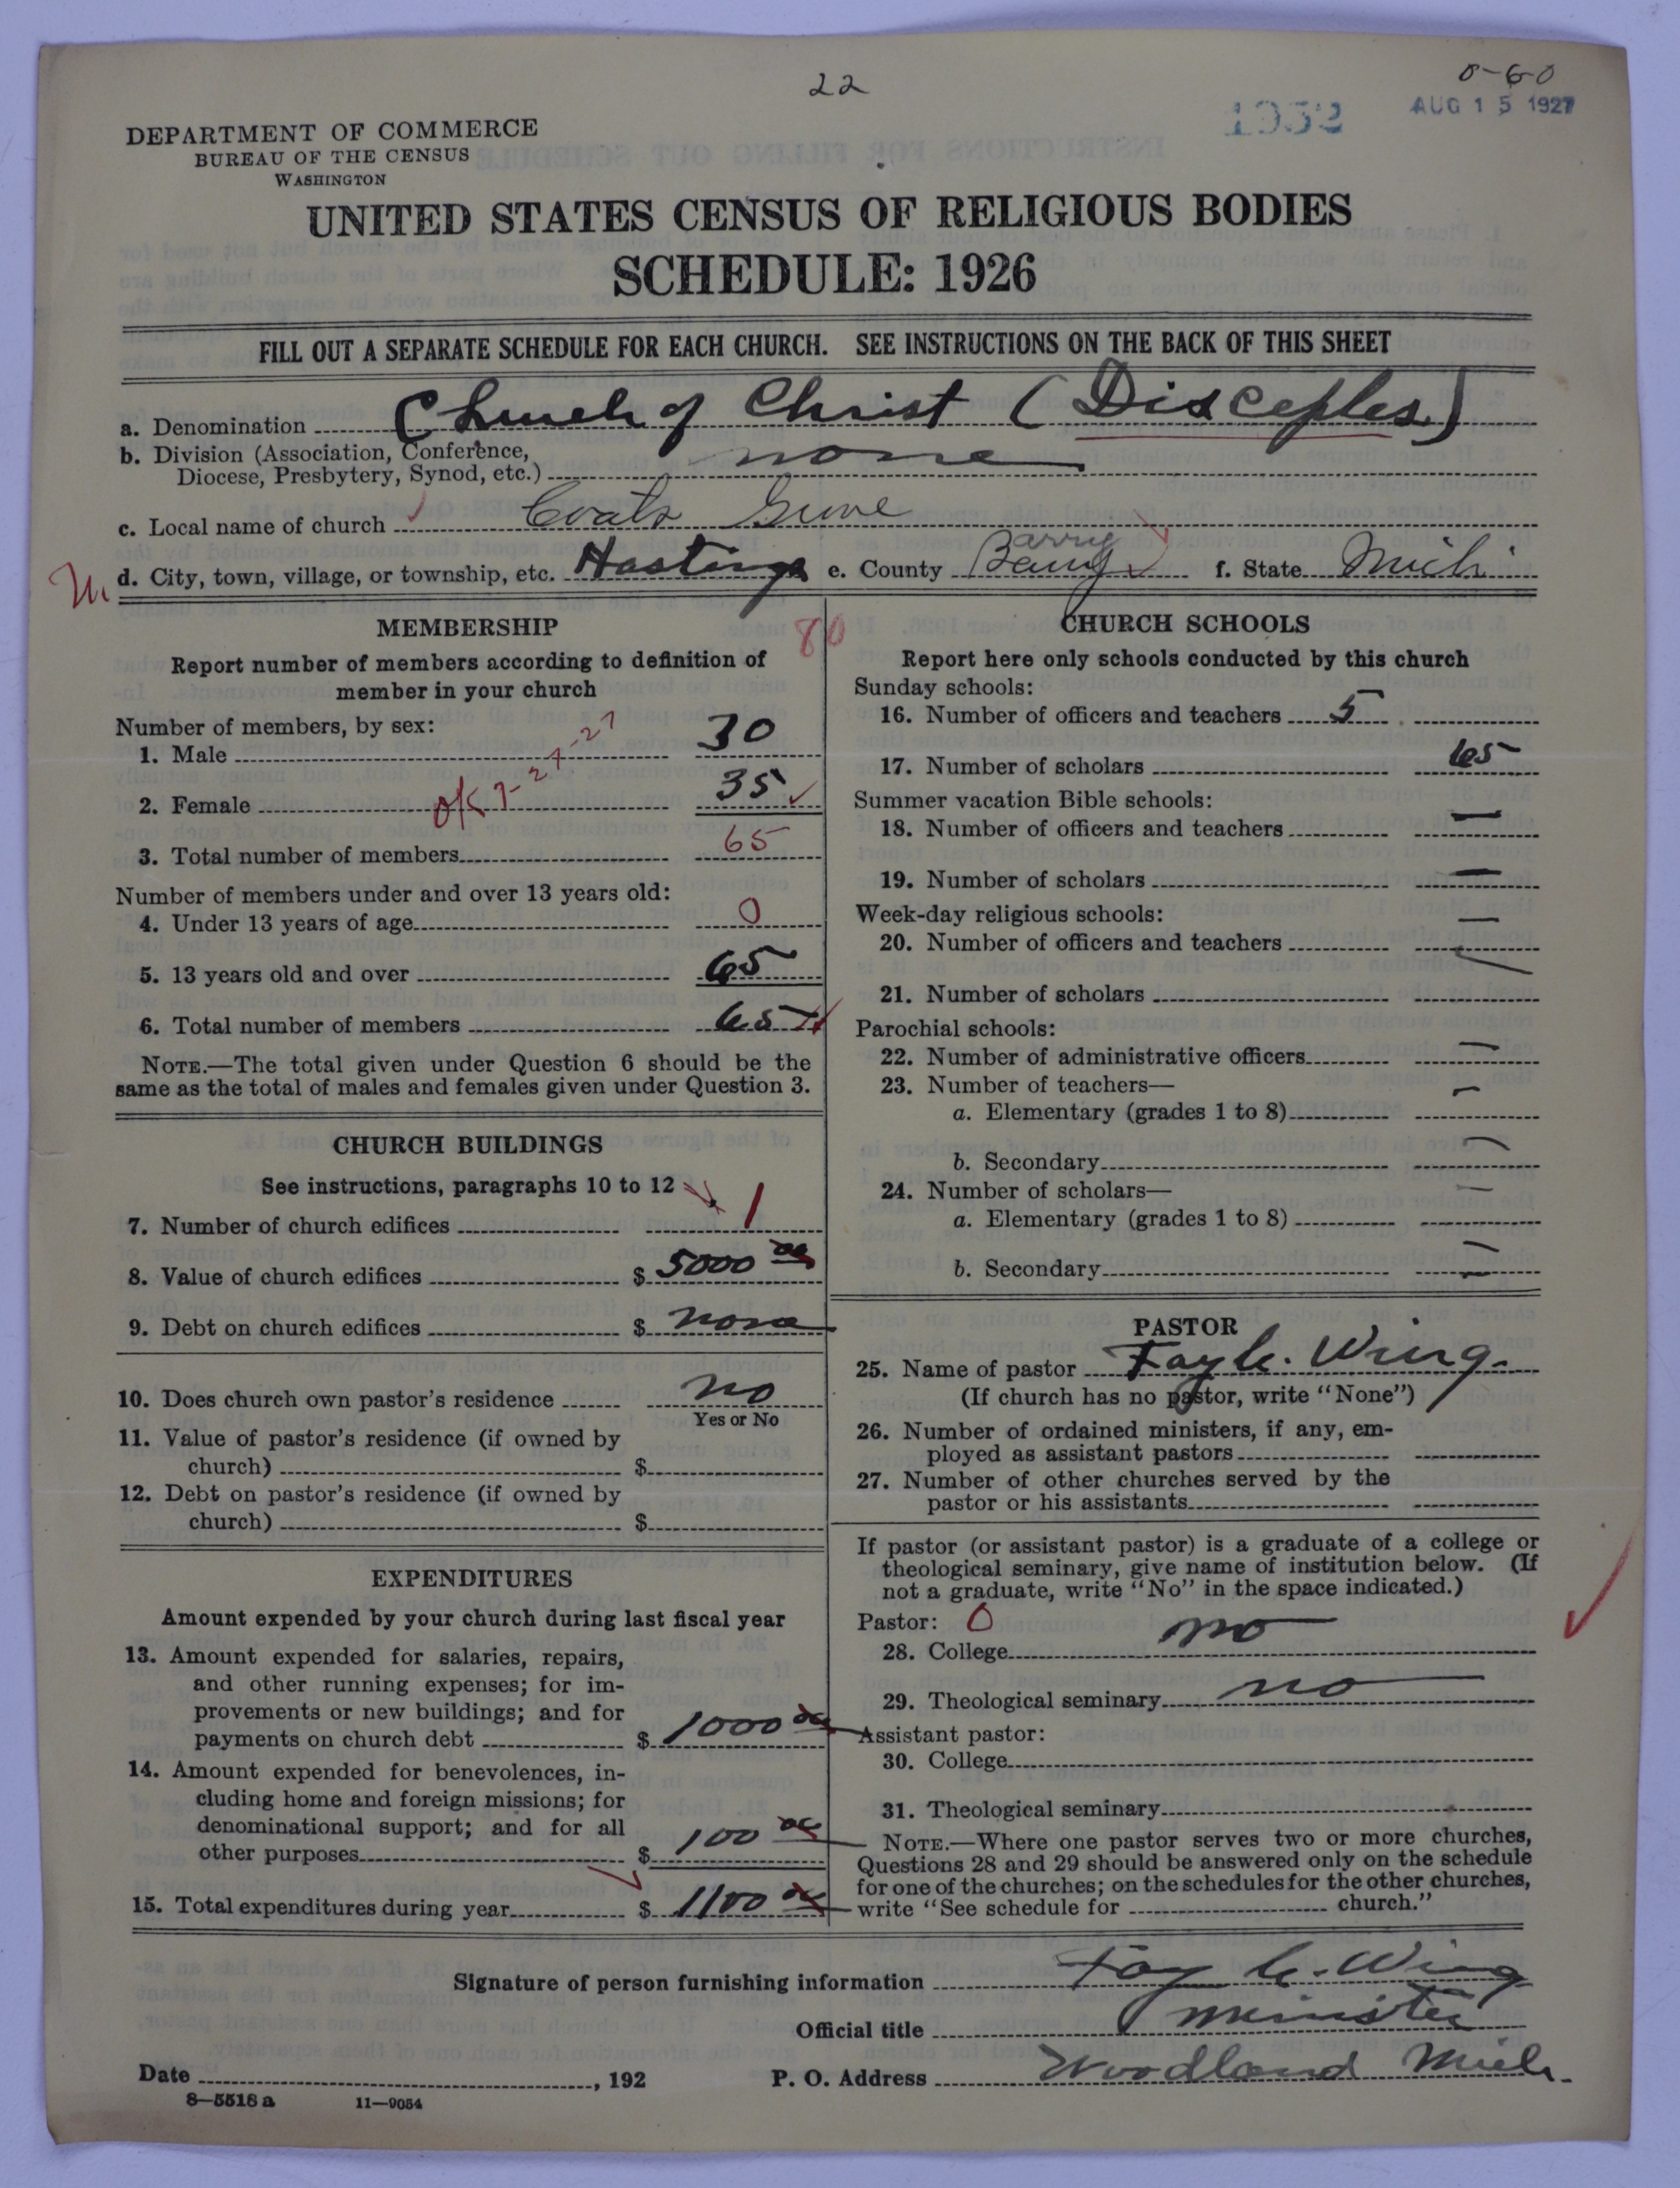 22
8-60
1932
AUG 15 1927
DEPARTMENT OF COMMERCE
BUREAU OF THE CENSUS
WASHINGTON
UNITED STATES CENSUS OF RELIGIOUS BODIES
SCHEDULE: 1926
FILL OUT A SEPARATE SCHEDULE FOR EACH CHURCH. SEE INSTRUCTIONS ON THE BACK OF THIS SHEET
a. Denomination Church of Christ (Disceples)
b. Division (Association, Conference,
Diocese, Presbytery, Synod, etc.) none
c. Local name of church Coats Grove
Barry
d. City, town, village, or township, etc. Hastings e. County Barry f. State Mich
80
MEMBERSHIP
Report number of members according to definition of
member in your church
Number of members, by sex:
1. Male 30
2. Female 35
OK 7-27-27
3. Total number of members 65
Number of members under and over 13 years old:
4. Under 13 years of age 0
5. 13 years old and over 65
6. Total number of members 65
NOTE.—The total given under Question 6 should be the
same as the total of males and females given under Question 3.
CHURCH BUILDINGS
See instructions, paragraphs 10 to 12
7. Number of church edifices 1
8. Value of church edifices $ 5000 00
9. Debt on church edifices $ none
10. Does church own pastor's residence no
Yes or No
11. Value of pastor's residence (if owned by
church) $
12. Debt on pastor's residence (if owned by
church) $
EXPENDITURES
Amount expended by your church during last fiscal year
13. Amount expended for salaries, repairs,
and other running expenses; for im-
provements or new buildings; and for
payments on church debt $ 1000 00
14. Amount expended for benevolences, in-
cluding home and foreign missions; for
denominational support; and for all
other purposes $ 100 00
15. Total expenditures during year $ 1100 00
CHURCH SCHOOLS
Report here only schools conducted by this church
Sunday schools:
16. Number of officers and teachers 5
17. Number of scholars 65
Summer vacation Bible schools:
18. Number of officers and teachers —
19. Number of scholars —
Week-day religious schools:
20. Number of officers and teachers —
21. Number of scholars —
Parochial schools:
22. Number of administrative officers —
23. Number of teachers—
a. Elementary (grades 1 to 8) —
b. Secondary —
24. Number of scholars— —
a. Elementary (grades 1 to 8)
b. Secondary —
PASTOR
25. Name of pastor Fay C. Wing
(If church has no pastor, write "None")
26. Number of ordained ministers, if any, em-
ployed as assistant pastors
27. Number of other churches served by the
pastor or his assistants
If pastor (or assistant pastor) is a graduate of a college or
theological seminary, give name of institution below. (If
not a graduate, write "No" in the space indicated.)
Pastor: 0
28. College no
29. Theological seminary no
Assistant pastor:
30. College
31. Theological seminary
NOTE.—Where one pastor serves two or more churches,
Questions 28 and 29 should be answered only on the schedule
for one of the churches; on the schedules for the other churches,
write "See schedule for church."
Signature of person furnishing information Fay C. Wing
Official title Minister
Date , 192 P. O. Address Woodland Mich.
8—5518 a 11—9054